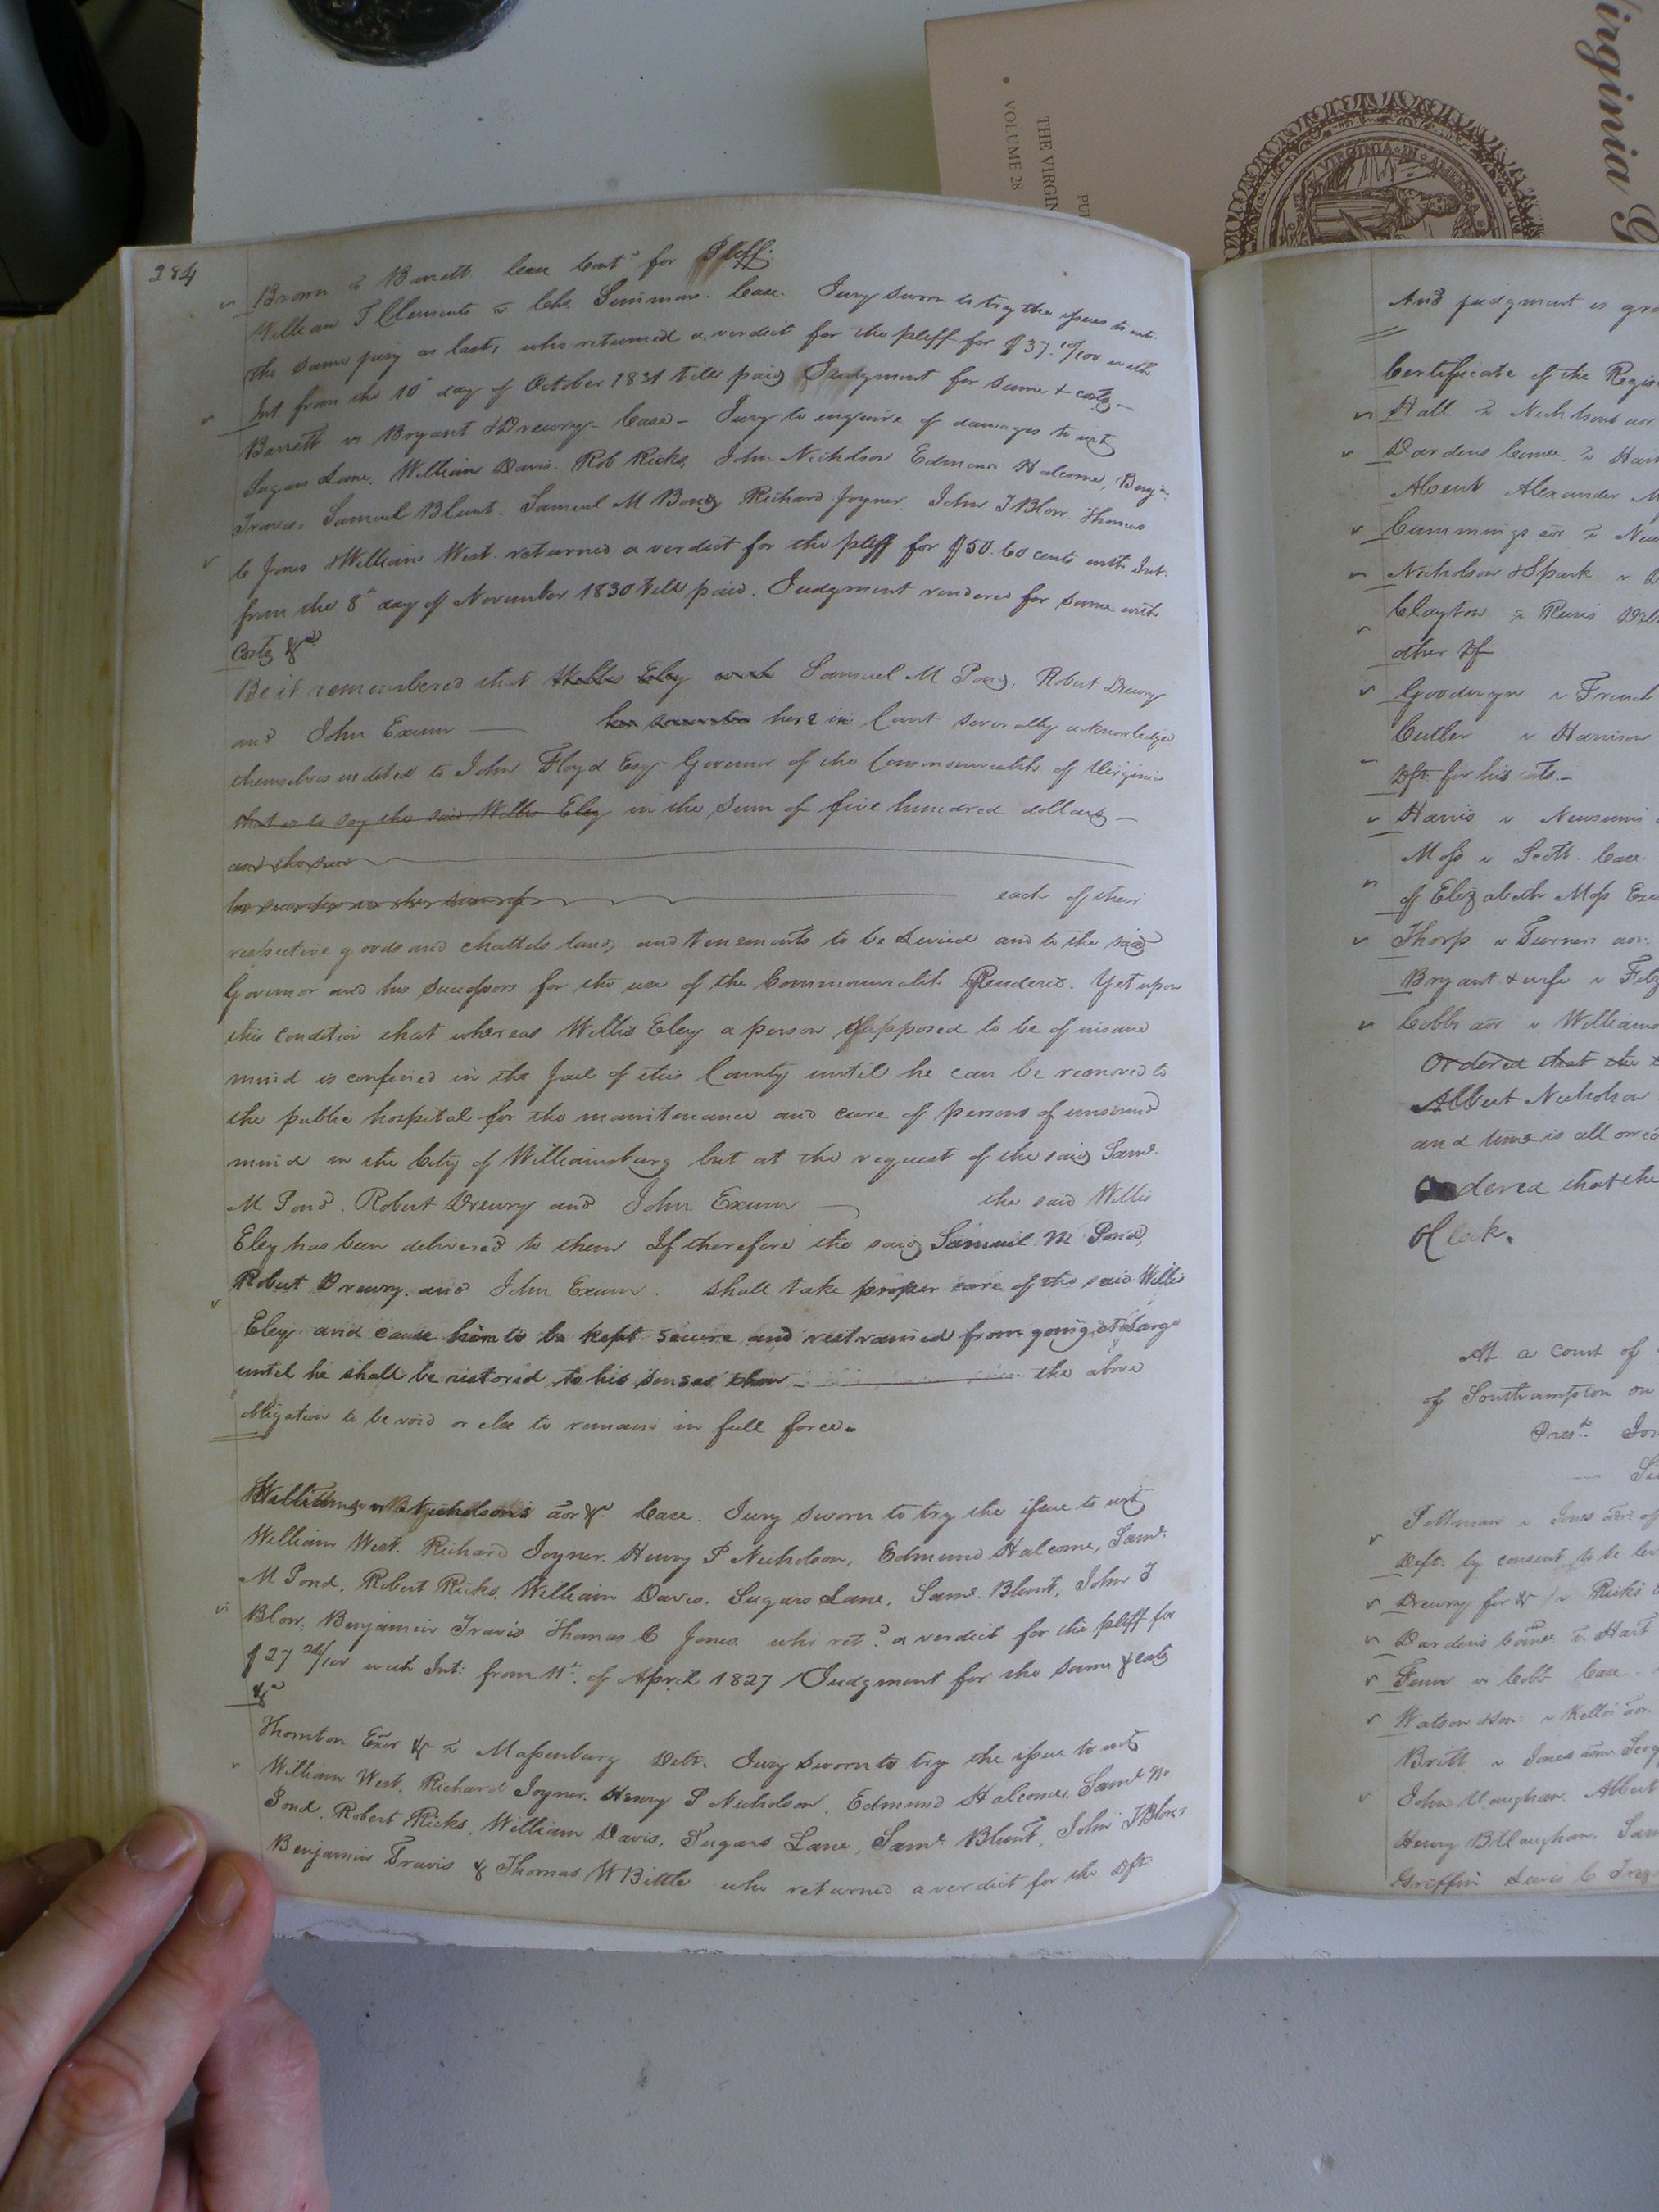 284
Brown v Barrett Case Contd for Pleff.
William T Clements v Chs. Simmons. Case. Jury sworn to try the issues to wit.
the same jury as last, who returned a verdict for the pleff for $37. 10/100 with
Int from the 10th day of October 1831 till paid Judgment for same & costs —
Barrett vs Bryant & Drewry - Case - Jury to enquire of damages to wit
Sugars Lane, William Davis. Rob Ricks, John Nicholson Edmund Halcome, Benjn.
Travis, Samuel Blunt. Samuel M Pond Richard Joyner. John T Blow. Thomas
C Jones & William West. returned a verdict for the pleff for $50.60 cents with Int.
from the 8th day of November 1830 till paid. Judgment rendered for same with
Costs &c
Be it remembered that Willis Eley with Samuel M Pond, Robert Drewry
and John Exum — his securities here in Court severally acknowledge
themselves indebted to John Floyd Esq. Governor of the Commonwealth of Virginia
that is to say the said Willis Eley in the sum of five hundred dollars —
and the said
his securities in the sum of each of their
respective goods and chattels lands and tenements to be levied and to the said
Governor and his successors for the use of the Commonwealth Rendered. Yet upon
this condition that whereas Willis Eley a person supposed to be of insane
mind is confined in the Jail of this County until he can be removed to
the public hospital for the maintenance and cure of persons of unsound
mind in the City of Williamsburg but at the request of the said Saml.
M Pond. Robert Drewry and John Exum — the said Willis
Eley has been delivered to them If therefore the said Samuel M Pond,
Robert Drewry. and John Exum. shall take proper care of the said Willis
Eley and cause him to be kept secure and restrained from going at large
until he shall be restored to his senses then the above
obligation to be void or else to remain in full force.
Williams v Nicholson's aor &c. Case. Jury sworn to try the issue to wit
William West. Richard Joyner. Henry P Nicholson, Edmund Halcome, Saml.
M Pond, Robert Ricks, William Davis, Sugars Lane, Saml. Blunt, John T
Blow, Benjamin Travis Thomas C Jones. who retd. a verdict for the pleff for
$27 /100 with Int: from 11th. of April 1827 / Judgment for the same & costs
&c
Thornton Exor &c v Massenburg Debt. Jury sworn to try the issue to wit
William West, Richard Joyner, Henry P Nicholson, Edmund Halcome, Saml. M
Pond, Robert Ricks, William Davis, Sugars Lane, Saml. Blunt, John T Blow
Benjamin Travis & Thomas W Bittle who returned a verdict for the Dft.
And judgment is gra
Certificate of the Regis
Hall v Nicholsons aor
Dardens Comee v Har
Absent Alexander M
Cummings aor v New
Nicholson & Spark v D
Clayton v
other Df
Goodwyn v French
Cutler v Harrison
Dft. for his costs. -
Harris v Newsums
Moss v Scott. Case
of Elizabeth Moss Exu
Thorp v Turners aor.
Bryant & wife v Fitz
Cobbs aor v Williams
Ordered that the
Albert Nicholson
and time is allowed
Ordered that the
Clock.
At a court of
of Southampton on
Prest.
v Jones
Deft. by consent to be
Drewry for &c v Ricks
Dardens Comee v Hart
Fenn vs Cobb Case -
Watson &Son: v
Britt v Jones
John Vaughan, Albert
Henry B Vaughan, Sam
Griffin Lewis C
THE VIRGIN
VOLUME 28
VIRGINIA
irginia G